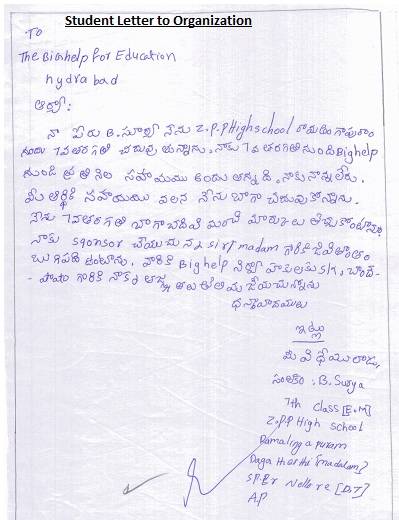 Student Letter to Organization
To
The Bighelp For Education
hydrabad
ఆర్యా:
నా పేరు B.సూర్య నేను Z.P.P Highschool రామలింగాపురం
నందు 7వ తరగతి చదువు తున్నాను. నాకు 7వ తరగతి నుండి Bighelp
నుండి ప్రతి నెల సహాయము అందు తున్నది. నాకు నాన్న లేరు.
మీ ఆర్థిక సహాయము వలన నేను బాగా చదువుకొన్నాను.
నేను 7వ తరగతి బాగా చదివి మంచి మార్కులు తెచ్చుకొంటాను.
నాకు sponsor చేయుచున్న sir/madam గారికి జీవితాంతం
బుణపడి ఉంటాను. వారికి Big help
ధన్యవాదములు
ఇట్లు
మీ విధేయురాలు,
సంతకం: B. Surya
7th class [E.M]
Z.P.P High school
Ramalinga puram
Daga tharthi [madalam]
SPSr Nellore [D.T]
A.P